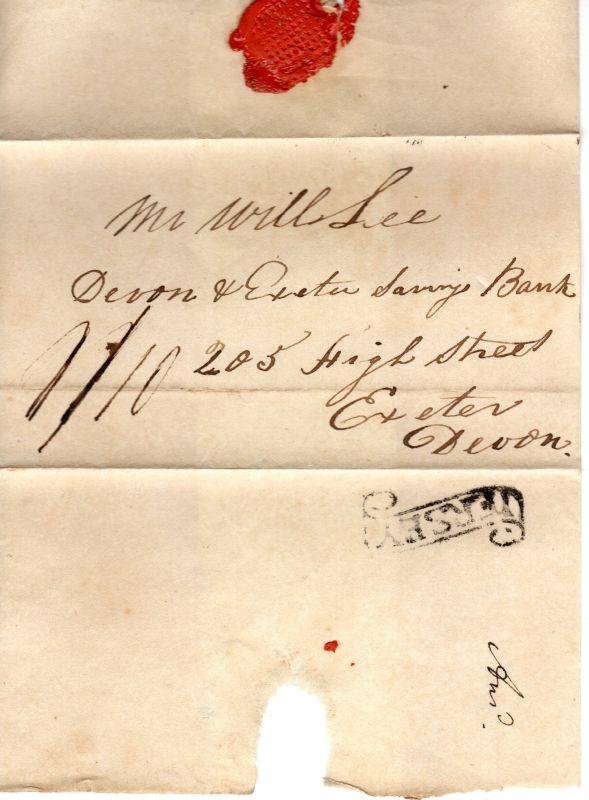 Mr Will Lee
Devon & Exeter Savings Bank
1/10 205 High Street
Exeter
Devon.
Ansd.